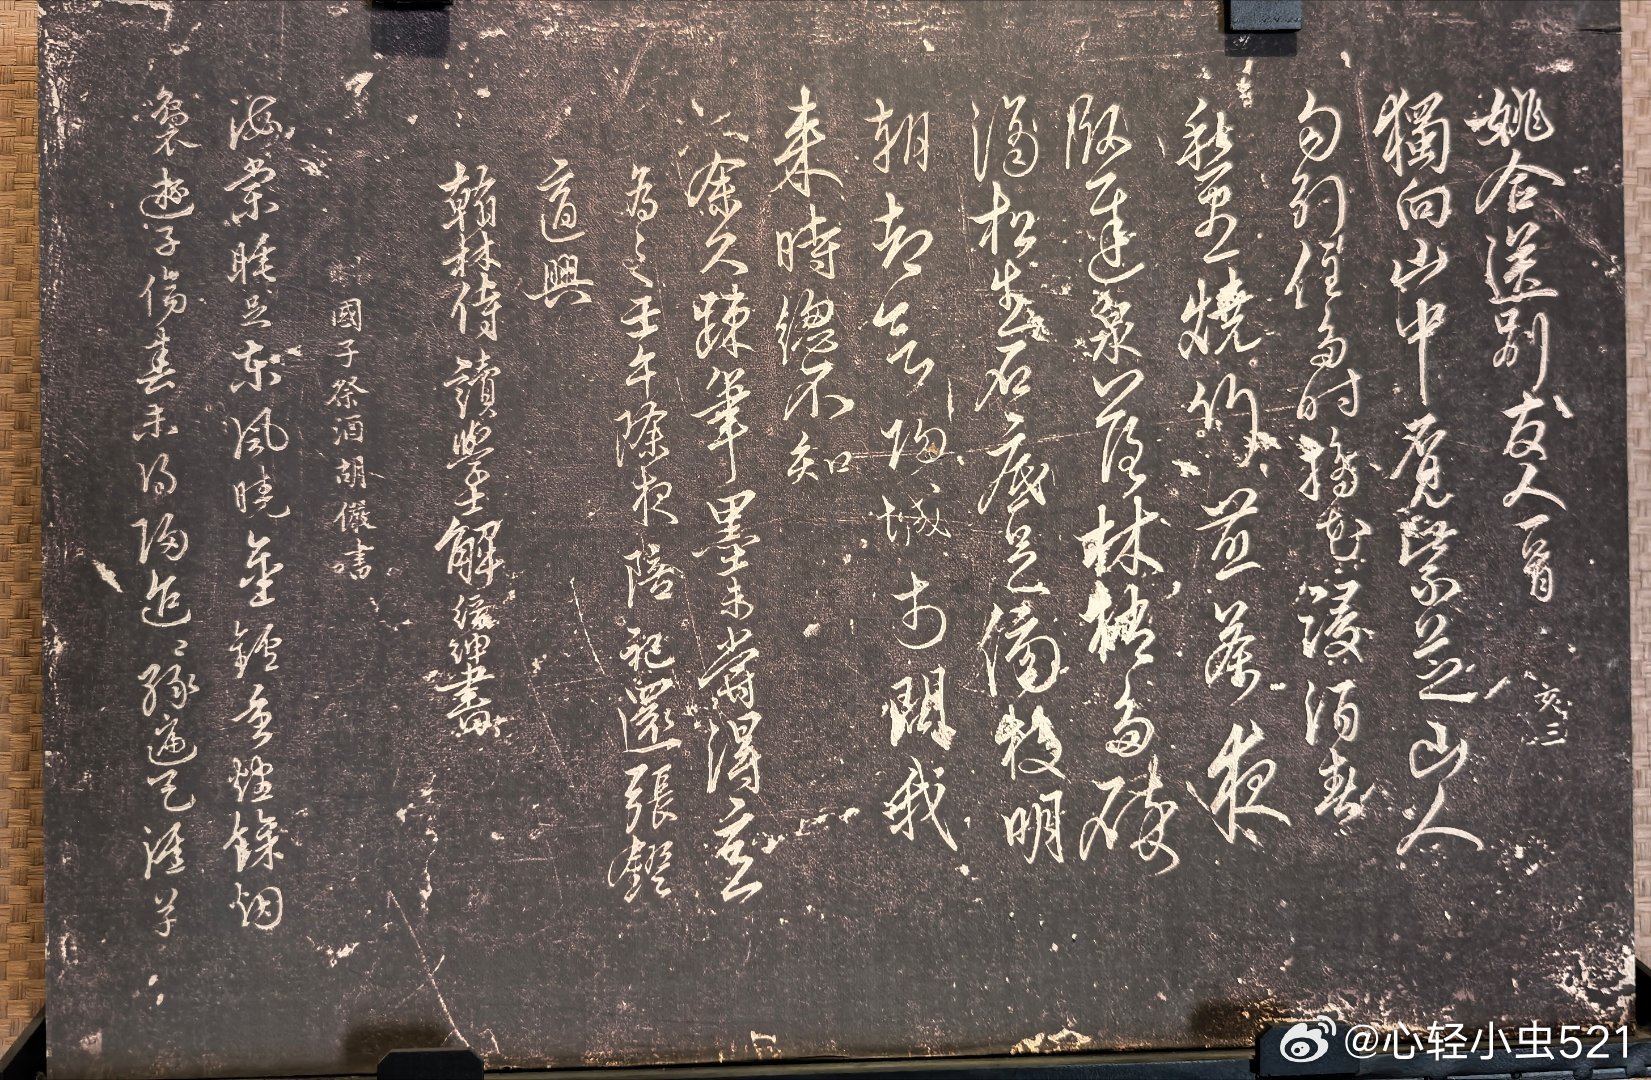 姚合送别友人一首
亥三
獨向山中覓紫芝山人
勾引住多時摘花浸酒春
愁盡燒竹煎茶夜
臥遲泉落林梢多碎
滴松生石底足傍枝明
朝却歸城市問我
來時總不知
余久疎筆墨未嘗得意
為之壬午除夜陪祀還張鐙
適興
翰林侍讀學士解縉紳書
國子祭酒胡儼書
海棠睡足東風曉金鑪香燼餘烟
裊遊子傷春未得歸迢〻綠遍天涯草
@心轻小虫521